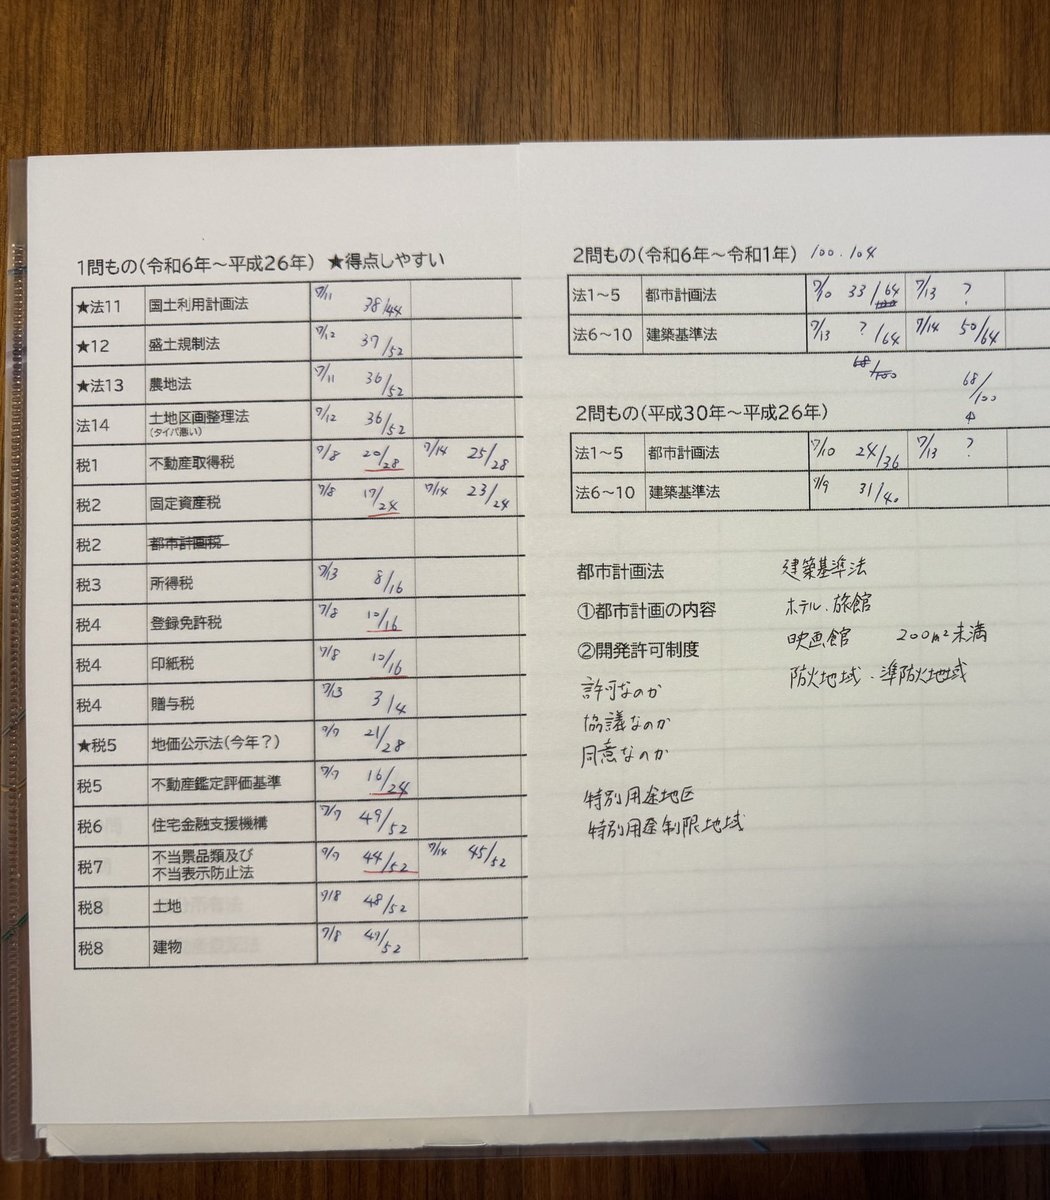 1問もの(令和6年～平成26年) ★得点しやすい
★法11 国土利用計画法 7/11 38/44
★12 盛土規制法 7/12 37/52
★法13 農地法 7/11 36/52
法14 土地区画整理法 7/12 36/52
(タイパ悪い)
税1 不動産取得税 7/8 20/28 7/14 25/28
税2 固定資産税 7/8 17/24 7/14 23/24
税2 都市計画税
税3 所得税 7/13 8/16
税4 登録免許税 7/8 10/16
税4 印紙税 7/8 10/16
税4 贈与税 7/13 3/4
★税5 地価公示法(今年?) 7/7 21/28
税5 不動産鑑定評価基準 7/7 16/24
税6 住宅金融支援機構 7/7 49/52
税7 不当景品類及び
不当表示防止法 7/7 44/52 7/14 45/52
税8 土地 7/8 48/52
税8 建物 7/8 47/52
2問もの(令和6年～令和1年) 100.104
法1～5 都市計画法 7/10 33/64 7/13 ?
法6～10 建築基準法 7/13 ?/64 7/14 50/64
68/100
68/100
2問もの(平成30年～平成26年)
法1～5 都市計画法 7/10 24/36 7/13 ?
法6～10 建築基準法 7/9 31/40
都市計画法
①都市計画の内容
②開発許可制度
許可なのか
協議なのか
同意なのか
特別用途地区
特別用途制限地域
建築基準法
ホテル、旅館
映画館 200m²未満
防火地域・準防火地域